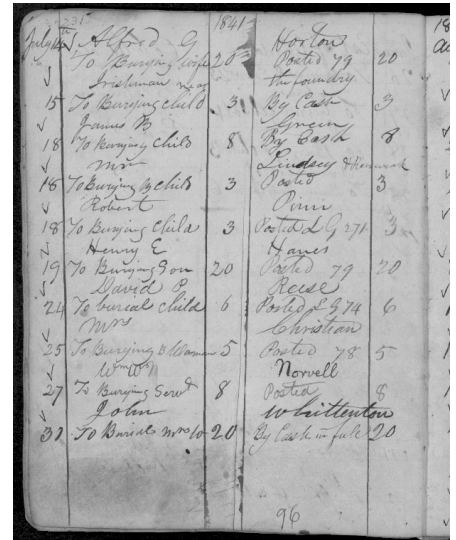 231 1841
July 14 Alfred G Horton
To Burying wife 20 Posted 79 20
Irishman near the foundry
15 To Burying child 3 By Cash 3
James B Green
18 To Burying child 8 By Cash 8
Mrs Lindsey
18 To Burying B child 3 Posted 3
Robert Pinn
18 To Burying Child 3 Posted L G 271 3
Henry E Hanes
19 To Burying Son 20 Posted 79 20
David P Reese
24 To burial child 6 Posted L G 74 6
Mrs Christian
25 To Burying B Woman 5 Posted 78 5
Wm W Norvell
27 To Burying Servt 8 Posted 8
John Whittenton
31 To Burial Mrs W 20 By Cash in full 20
96